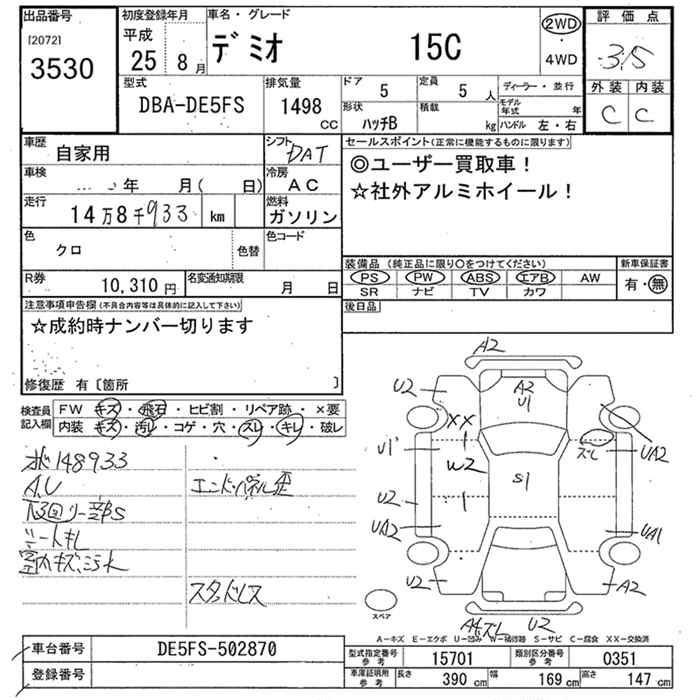 出品番号
[2072]
3530
初度登録年月
平成
25年 8月
車名・グレード
デミオ 15C
2WD
・
4WD
評価点
3.5
外装 内装
C C
型式
DBA-DE5FS
排気量
1498
CC
ドア
5
定員
5 人
形状
ハッチB
積載
kg
ディーラー・並行
モデル年式 年
ハンドル 左・右
車歴
自家用
シフト
DAT
車検
年 月( 日)
冷房
AC
走行
14万8千933 km
燃料
ガソリン
色
クロ
色替
色コード
R券
10,310 円
名変通知期限
月 日
セールスポイント(正常に機能するものに限ります)
◎ユーザー買取車!
☆社外アルミホイール!
装備品(純正品に限り○をつけてください)
PS PW ABS エアB AW
SR ナビ TV カワ
新車保証書
有・無
後日品
注意事項申告欄(不具合内容等は具体的に記入して下さい)
☆成約時ナンバー切ります
修復歴 有〔箇所 〕
検査員記入欄
FW キズ・飛石・ヒビ割・リペア跡・×要
内装 キズ・汚レ・コゲ・穴・スレ・キレ・破レ
148933
A.U
エンドパネル歪
シートキレ
スタッドレス
A2
U2
A2
U1
XX
U1
W2
S1
スレ
UA2
U2
UA2
UA1
U2
A2
スペア
スレ
U2
A-キズ E-エクボ U-凹み W-補修跡 S-サビ C-腐食 XX-交換済
車台番号
DE5FS-502870
登録番号
型式指定番号 参考
15701
類別区分番号 参考
0351
車庫証明用 参考
長さ 390 cm
幅 169 cm
高さ 147 cm